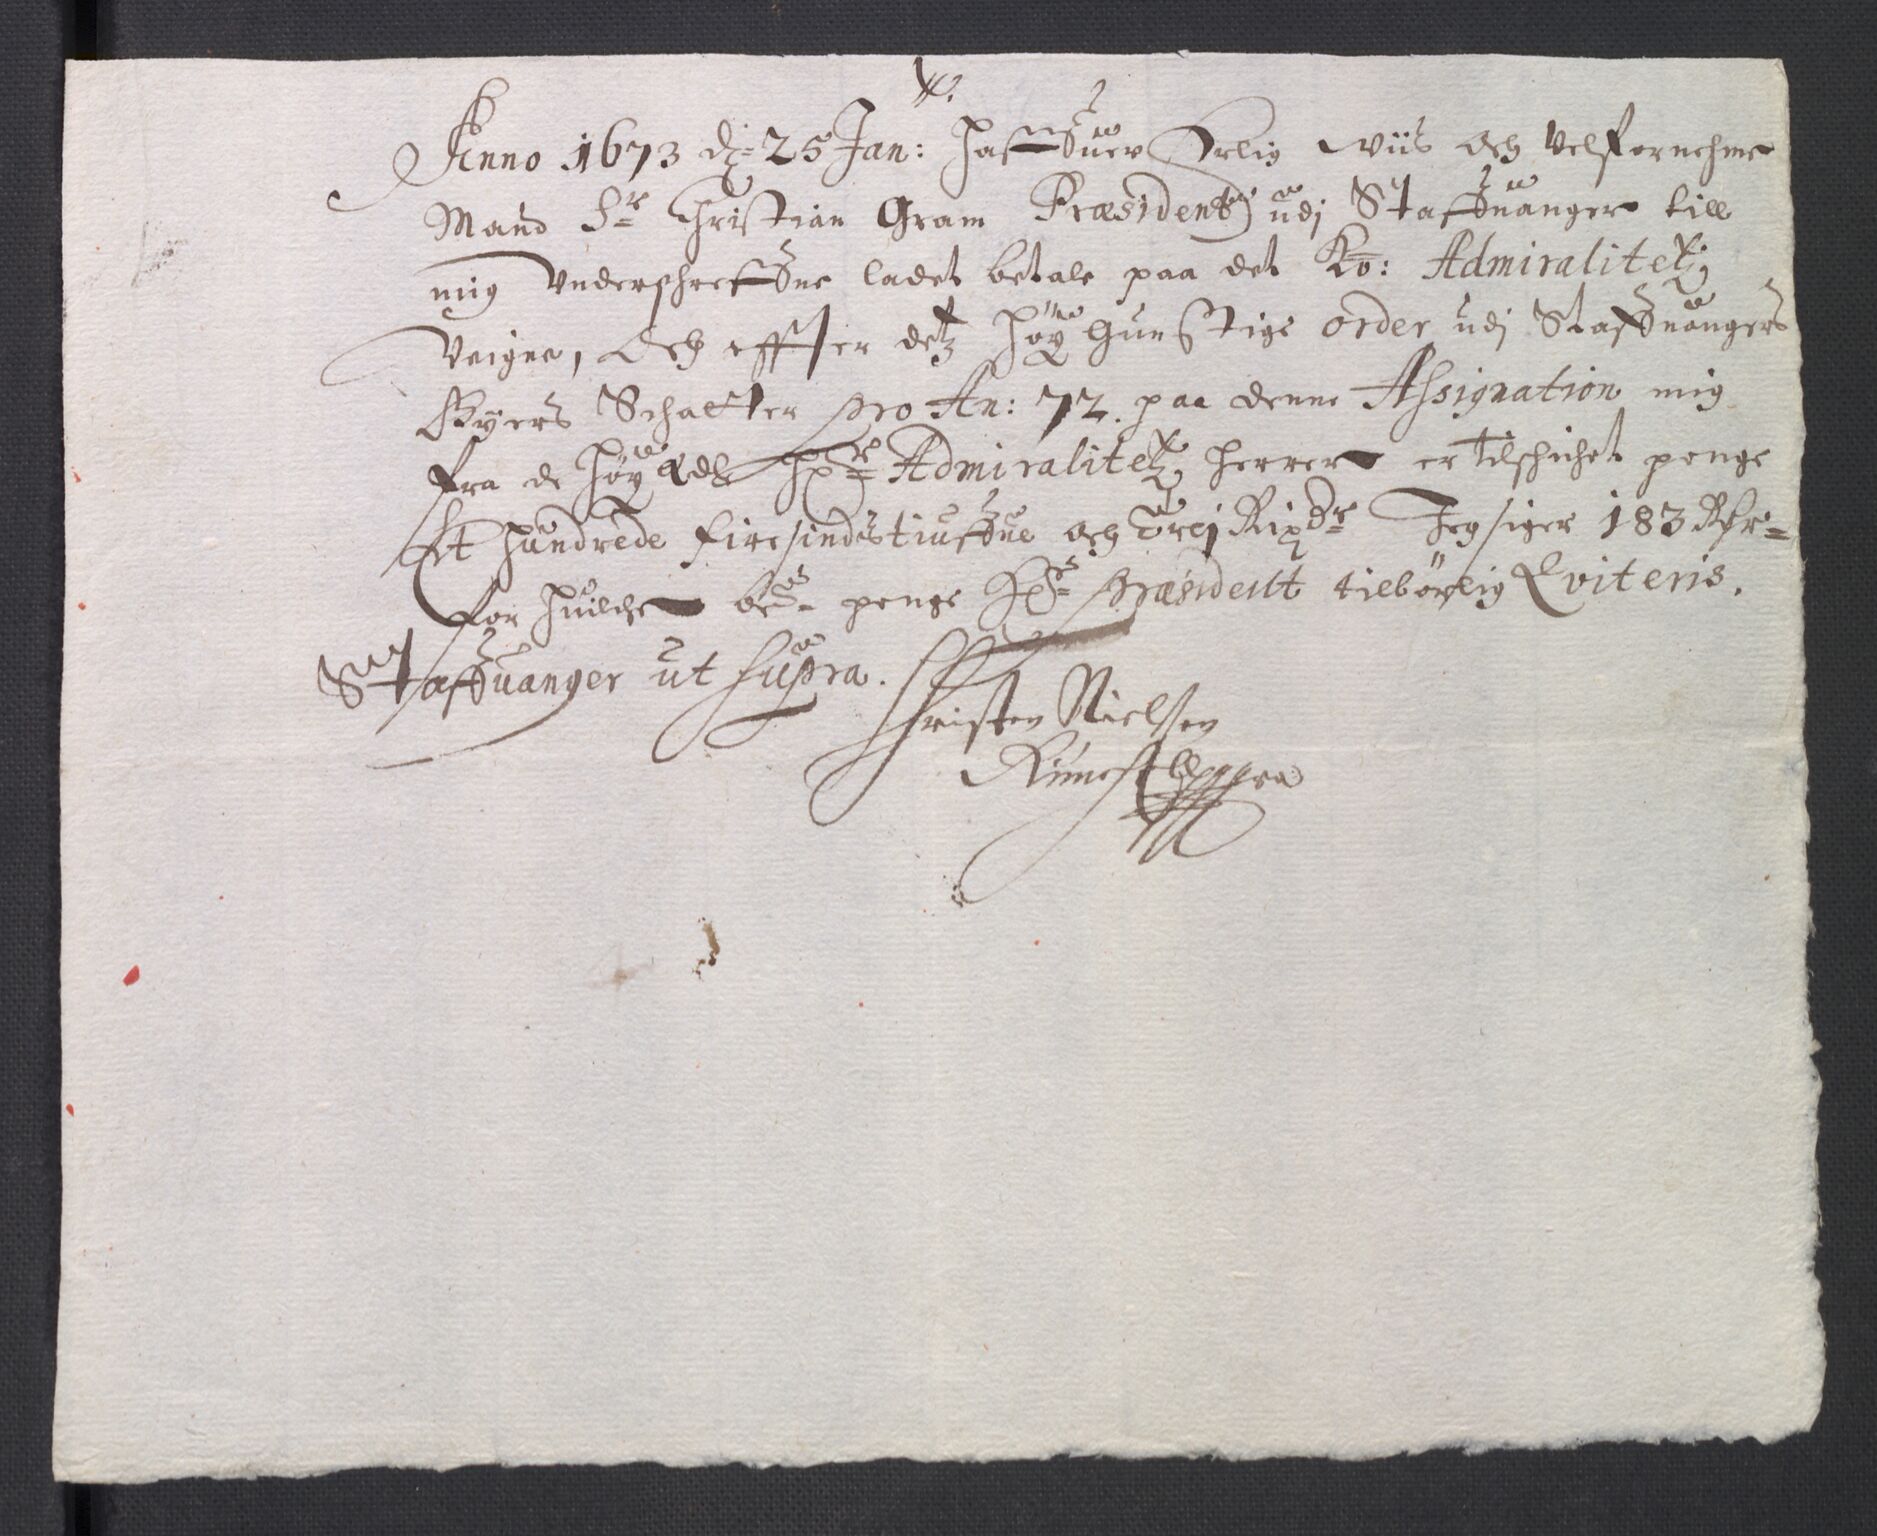 Anno 1673 dz 25 Jan: haffuer Erlig Wiis och Velfornehme
Mand Sr Christian Gram Præsident udj Staffuanger till
mig Vnderschreffne ladet betale paa det Ko: Admiralitetz
Veigne, Och effter detz höÿ Gunstige order udj Staffuangers
Byers Schatter pro An: 72. paa denne Assignation mig
fra de höÿ Edle Hr Admiralitetz herrer er tilschichet penge
Et hundrede firesindstiuffue och Trej Rixdr Jeg siger 183 Rdr
for huilche bete penge Hr præsident tilbörlig Qviteris.
Staffuanger ut supra.
Christen Nielsen